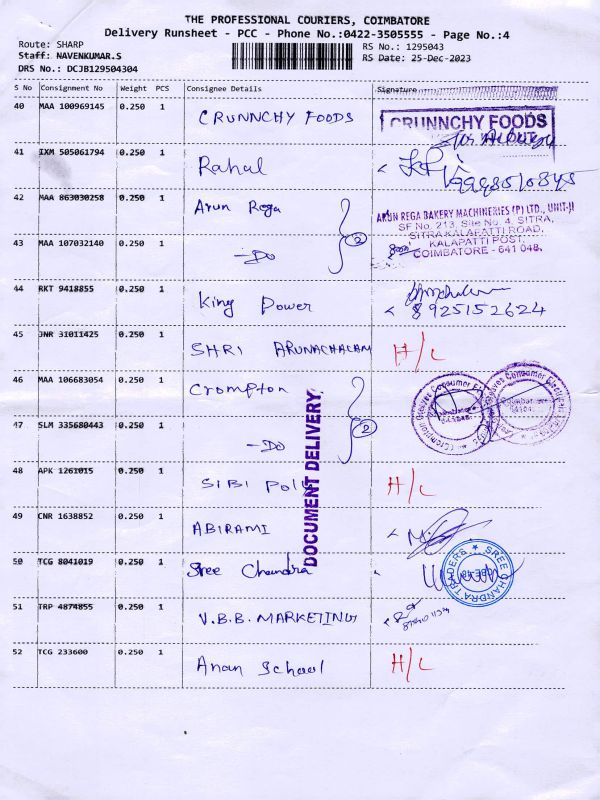 THE PROFESSIONAL COURIERS, COIMBATORE
Delivery Runsheet - PCC - Phone No.:0422-3505555 - Page No.:4
Route: SHARP
RS No.: 1295043
Staff: NAVENKUMAR.S
RS Date: 25-Dec-2023
DRS No.: DCJB129504304
S No Consignment No Weight PCS Consignee Details Signature
40 MAA 100969145 0.250 1 CRUNNCHY FOODS
CRUNNCHY FOODS
41 IXM 505061794 0.250 1 Rahul
42 MAA 863030258 0.250 1 Arun Rega
ARUN REGA BAKERY MACHINERIES (P) LTD., UNIT-II
SF No. 213, Site No. 4, SITRA,
SITRA KALAPATTI ROAD,
43 MAA 107032140 0.250 1 -Do 2
KALAPATTI POST,
COIMBATORE - 641 048.
44 RKT 9418855 0.250 1 King Power
8925152624
45 JNR 31011425 0.250 1 SHRI ARUNACHALAM H/L
46 MAA 106683054 0.250 1 Crompton
47 SLM 335680443 0.250 1 -Do 2
DOCUMENT DELIVERY
48 APK 1261015 0.250 1 SIBI H/L
49 CNR 1638852 0.250 1 ABIRAMI
50 TCG 8041019 0.250 1 Sree Chandra
SREE CHANDRA TRADERS
51 TRP 4874855 0.250 1 V.B.B. MARKETING
52 TCG 233600 0.250 1 Anan School H/L